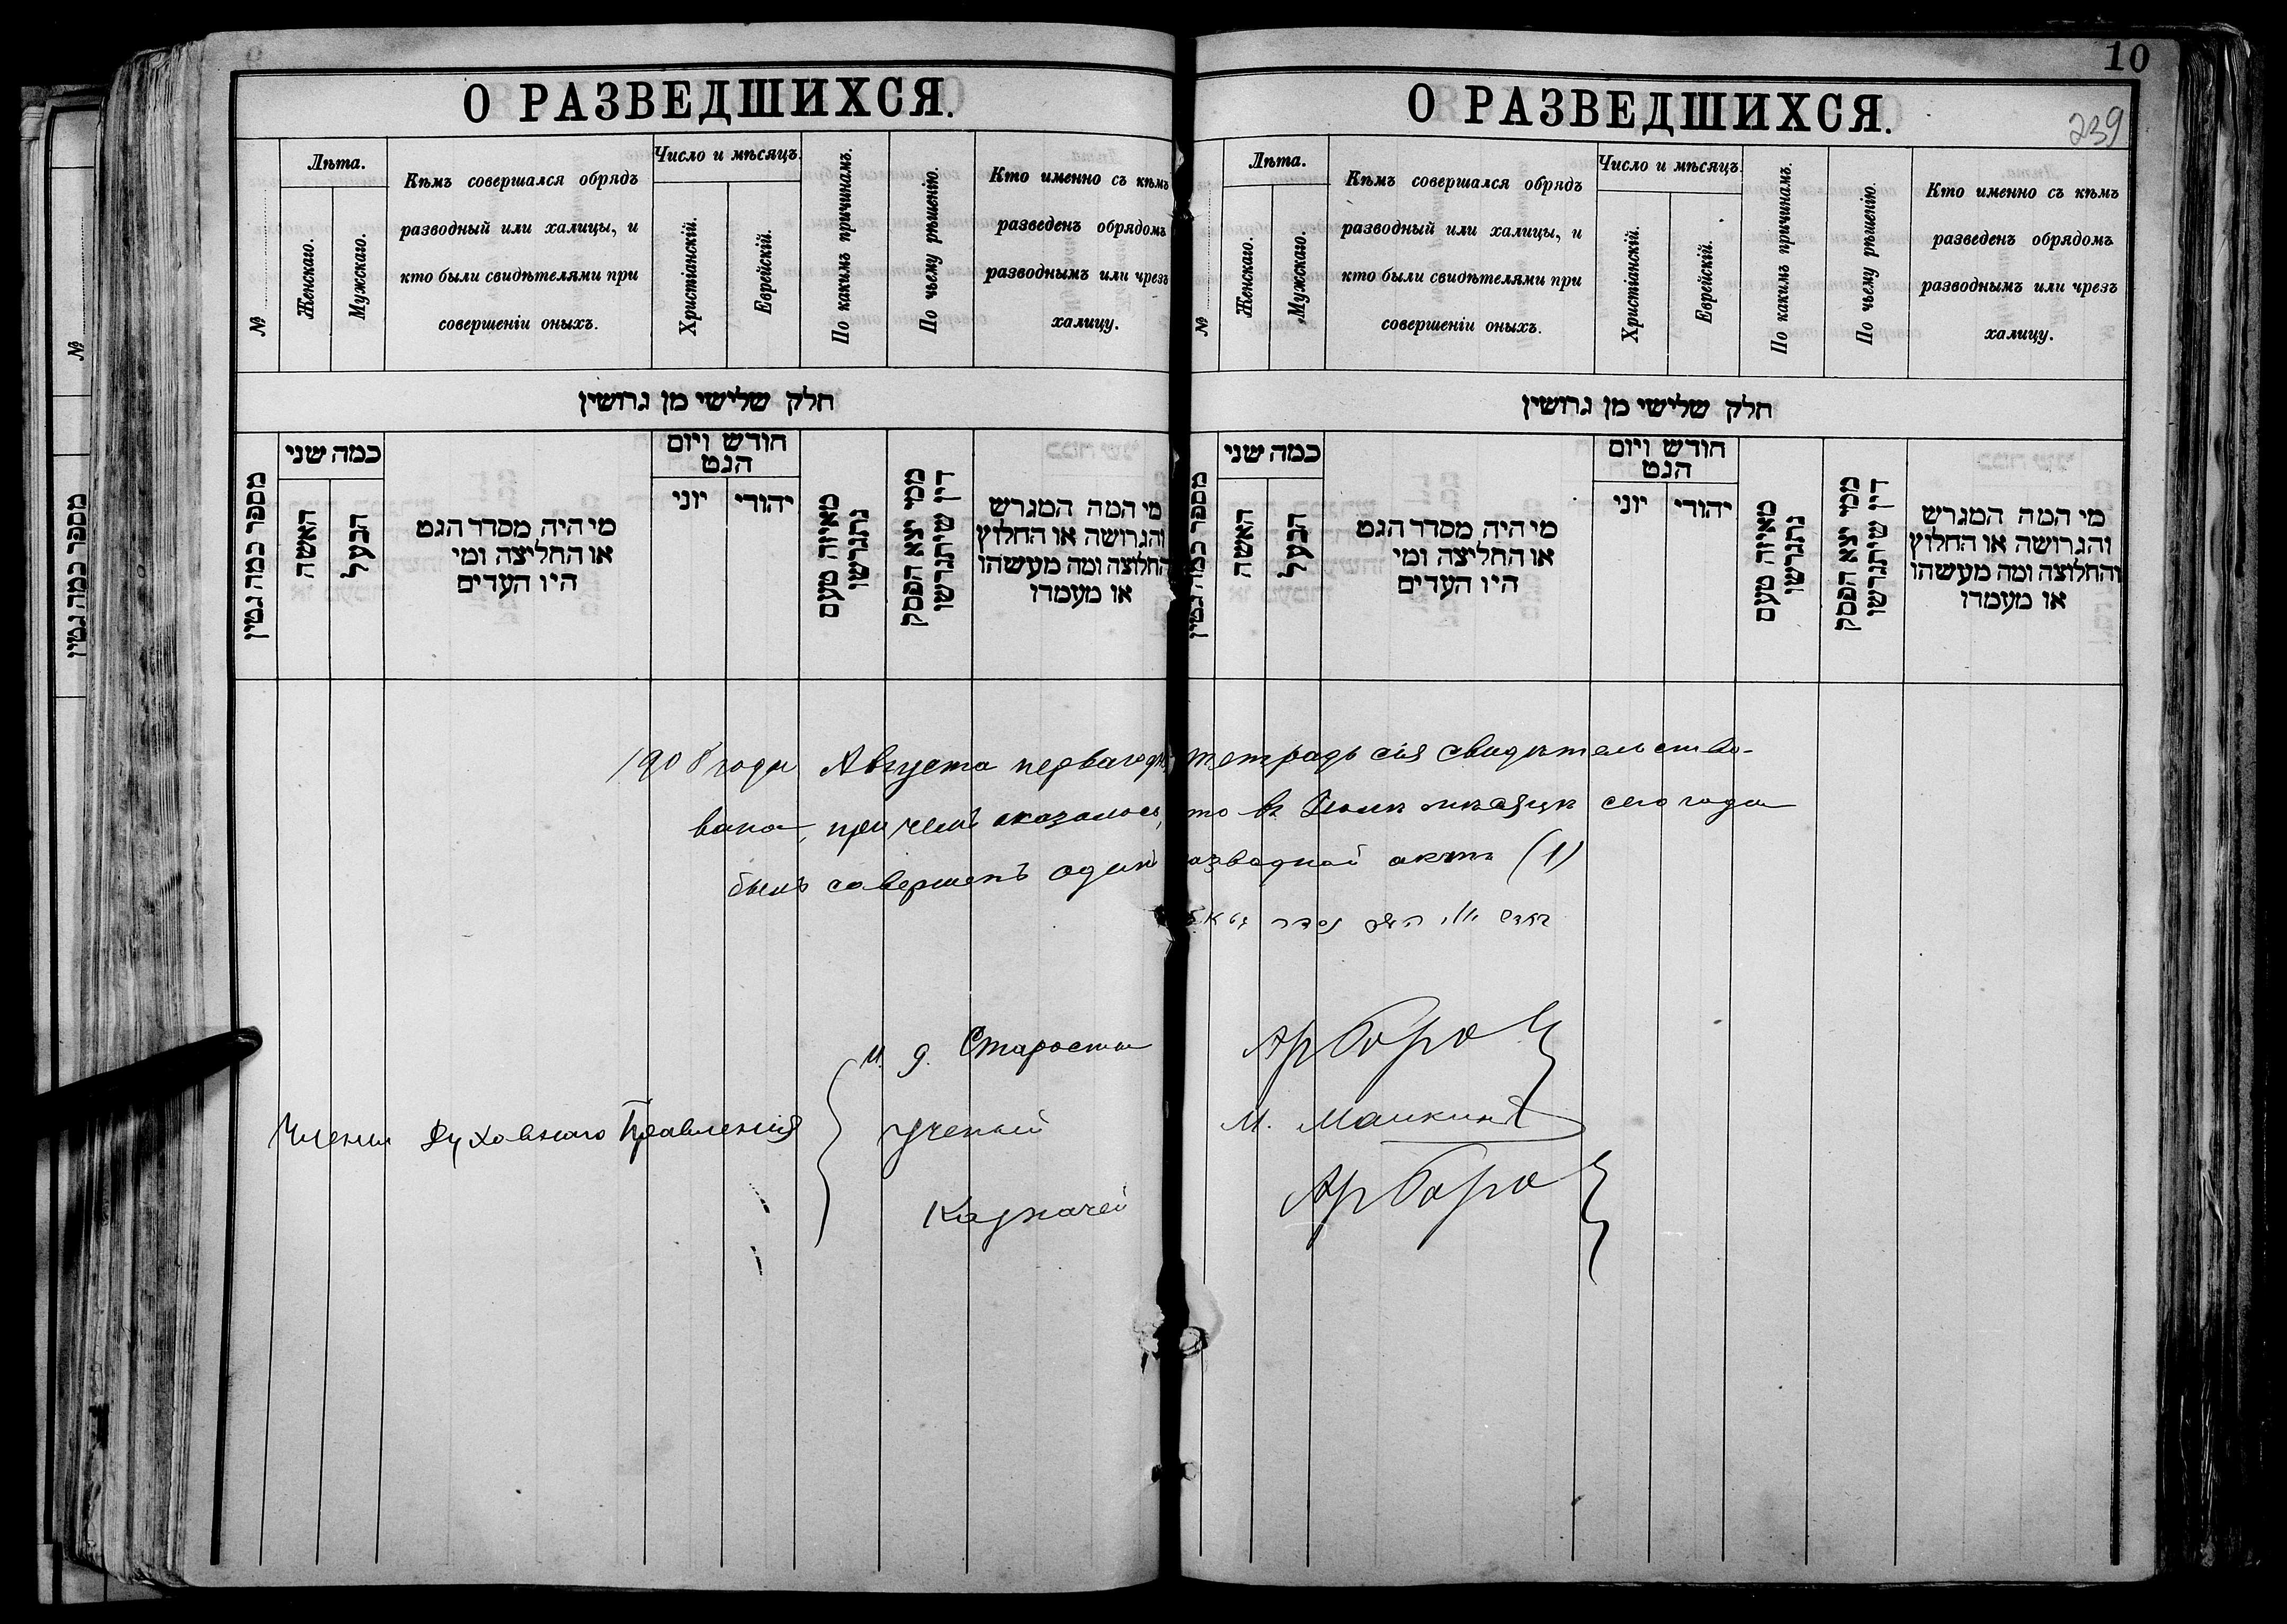 10
239
О РАЗВЕДШИХСЯ.
№
Лѣта.
Женскаго.
Мужскаго.
Кѣмъ совершался обрядъ
разводный или халицы, и
кто были свидѣтелями при
совершеніи оныхъ.
Число и мѣсяцъ.
Христіанскій.
Еврейскій.
По какимъ причинамъ.
По чьему рѣшенію.
Кто именно съ кѣмъ
разведенъ обрядомъ
разводнымъ или чрезъ
халицу.
חלק שלישי מן גרושין
מספר כמה גטין
כמה שני
האשה
הבעל
מי היה מסדר הגט
או החליצה ומי
היו העדים
חודש ויום
הגט
יוני
יהודי
מאיזה טעם
נתגרשו
ממי יצא הפסק
דין שיתגרשו
מי המה המגרש
והגרושה או החלוץ
והחלוצה ומה מעשהו
או מעמדו
О РАЗВЕДШИХСЯ.
№
Лѣта.
Женскаго.
Мужскаго.
Кѣмъ совершался обрядъ
разводный или халицы, и
кто были свидѣтелями при
совершеніи оныхъ.
Число и мѣсяцъ.
Христіанскій.
Еврейскій.
По какимъ причинамъ.
По чьему рѣшенію.
Кто именно съ кѣмъ
разведенъ обрядомъ
разводнымъ или чрезъ
халицу.
חלק שלישי מן גרושין
מספר כמה גטין
כמה שני
האשה
הבעל
מי היה מסדר הגט
או החליצה ומי
היו העדים
חודש ויום
הגט
יוני
יהודי
מאיזה טעם
נתגרשו
ממי יצא הפסק
דין שיתגרשו
מי המה המגרש
והגרושה או החלוץ
והחלוצה ומה מעשהו
או מעמדו
1908 года Августа перваго дня тетрадь сія свидѣтельство-
вана, при чемъ оказалось, что въ Іюлѣ мѣсяцѣ сего года
былъ совершенъ одинъ разводной актъ (1)
И. д. Старосты Арборо
Члены Духовнаго Правленія Ученый М. Малкинъ
Казначей Арборо
№
מספר כמה גטין